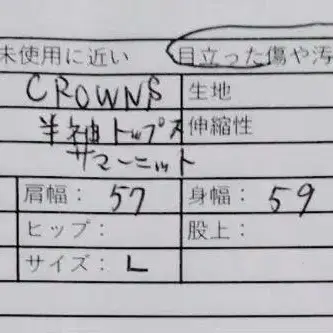 未使用に近い 目立った傷や汚
CROWNS 生地
半袖トップス 伸縮性
サマーニット
肩幅: 57 身幅: 59
ヒップ: 股上:
サイズ: L